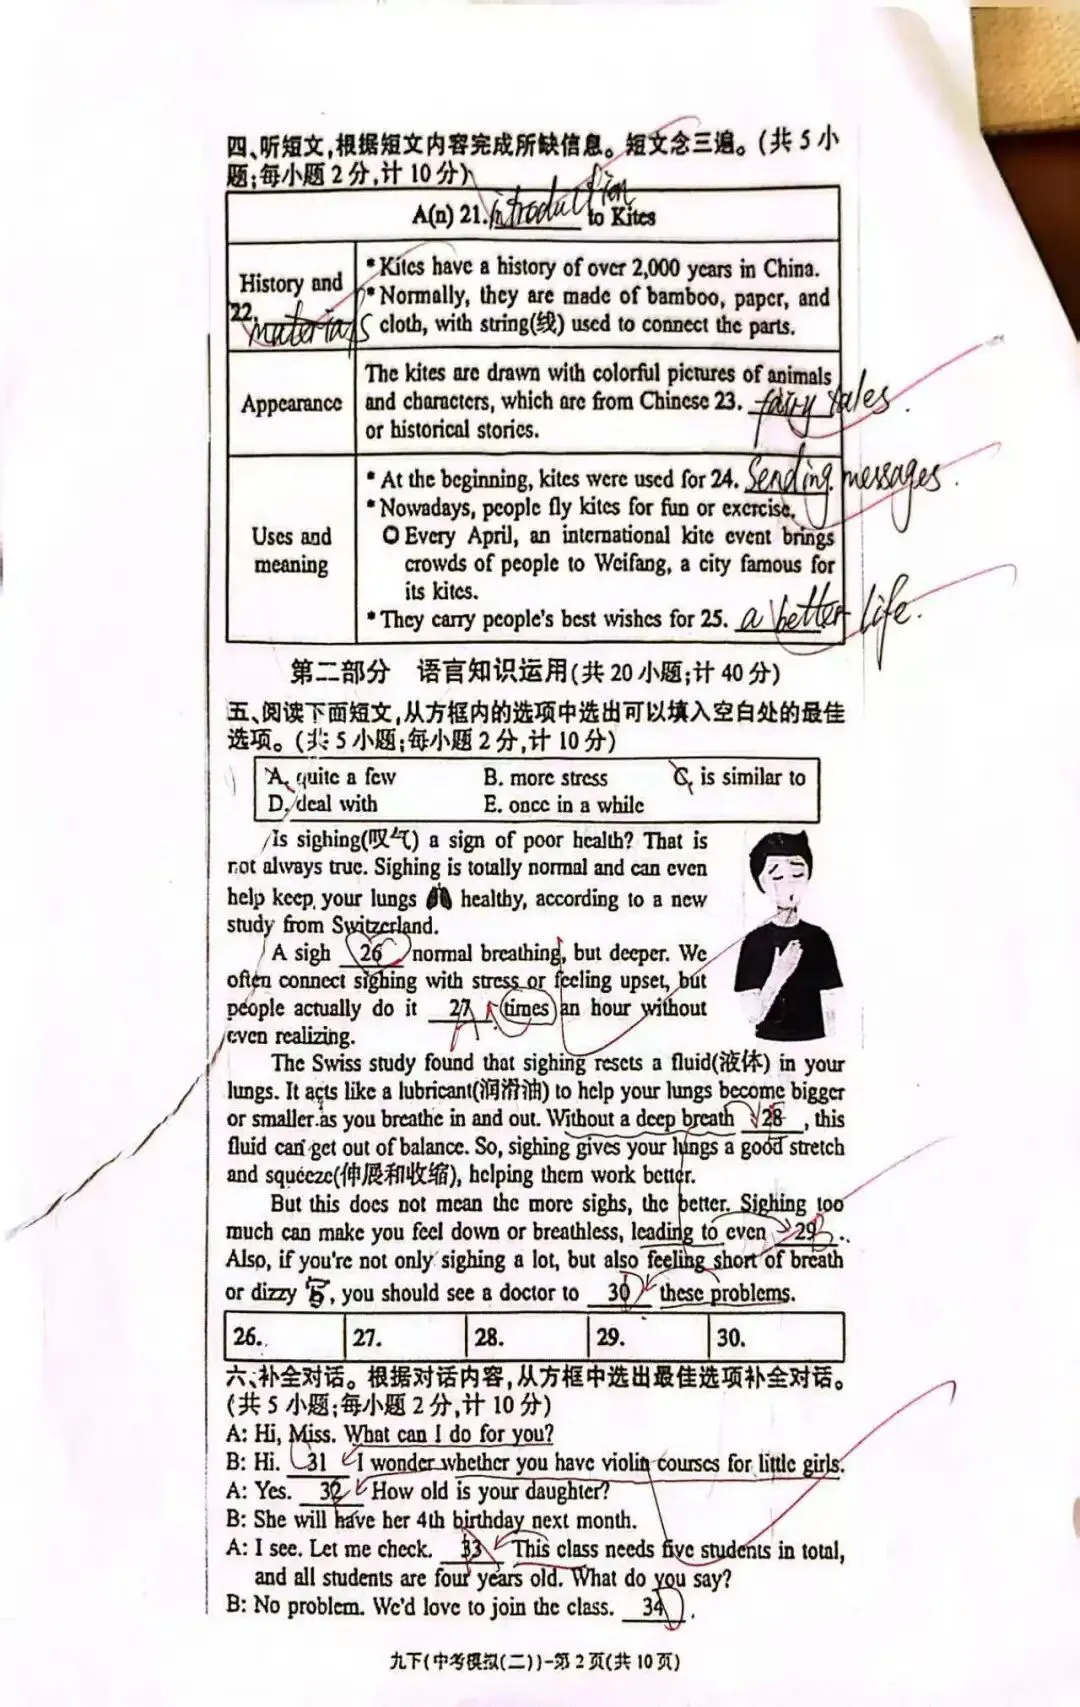 四、听短文,根据短文内容完成所缺信息。短文念三遍。(共 5 小
题;每小题 2 分,计 10 分)
A(n) 21. introduction to Kites
History and
22. materials
* Kites have a history of over 2,000 years in China.
* Normally, they are made of bamboo, paper, and
cloth, with string(线) used to connect the parts.
Appearance
The kites are drawn with colorful pictures of animals
and characters, which are from Chinese 23. fairy tales.
or historical stories.
Uses and
meaning
* At the beginning, kites were used for 24. Sending messages.
* Nowadays, people fly kites for fun or exercise.
O Every April, an international kite event brings
crowds of people to Weifang, a city famous for
its kites.
* They carry people's best wishes for 25. a better life.
第二部分 语言知识运用(共 20 小题;计 40 分)
五、阅读下面短文,从方框内的选项中选出可以填入空白处的最佳
选项。(共 5 小题;每小题 2 分,计 10 分)
A. quite a few B. more stress C. is similar to
D. deal with E. once in a while
Is sighing(叹气) a sign of poor health? That is
not always true. Sighing is totally normal and can even
help keep your lungs healthy, according to a new
study from Switzerland.
A sigh 26 C normal breathing, but deeper. We
often connect sighing with stress or feeling upset, but
people actually do it 27 A times an hour without
even realizing.
The Swiss study found that sighing resets a fluid(液体) in your
lungs. It acts like a lubricant(润滑油) to help your lungs become bigger
or smaller as you breathe in and out. Without a deep breath 28 , this
fluid can get out of balance. So, sighing gives your lungs a good stretch
and squeeze(伸展和收缩), helping them work better.
But this does not mean the more sighs, the better. Sighing too
much can make you feel down or breathless, leading to even 29 .
Also, if you're not only sighing a lot, but also feeling short of breath
or dizzy , you should see a doctor to 30 D these problems.
26. 27. 28. 29. 30.
六、补全对话。根据对话内容,从方框中选出最佳选项补全对话。
(共 5 小题;每小题 2 分,计 10 分)
A: Hi, Miss. What can I do for you?
B: Hi. 31 I wonder whether you have violin courses for little girls.
A: Yes. 32 How old is your daughter?
B: She will have her 4th birthday next month.
A: I see. Let me check. 33 This class needs five students in total,
and all students are four years old. What do you say?
B: No problem. We'd love to join the class. 34 D.
九下(中考模拟(二))-第 2 页(共 10 页)